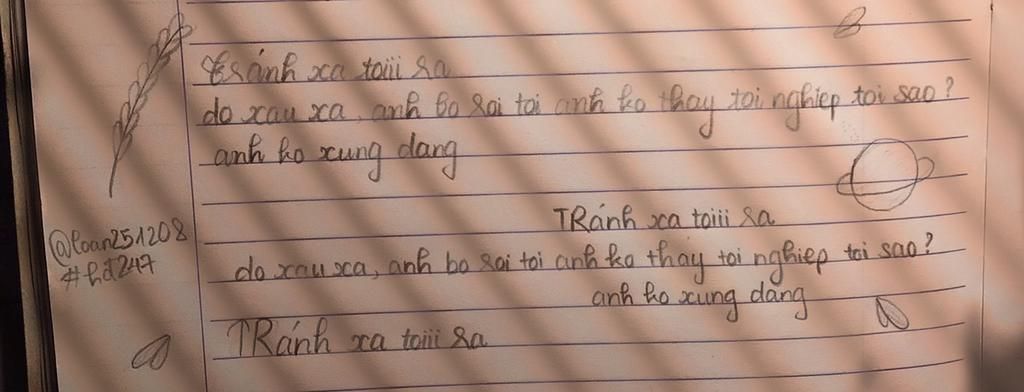 tránh xa toiii ra
do xau xa, anh bo roi toi anh ko thay toi nghiep toi sao?
anh ko xung dang
@loan251208
#hd247
TRánh xa toiii ra
do xau xa, anh bo roi toi anh ko thay toi nghiep toi sao?
anh ko xung dang
TRánh xa toiii ra